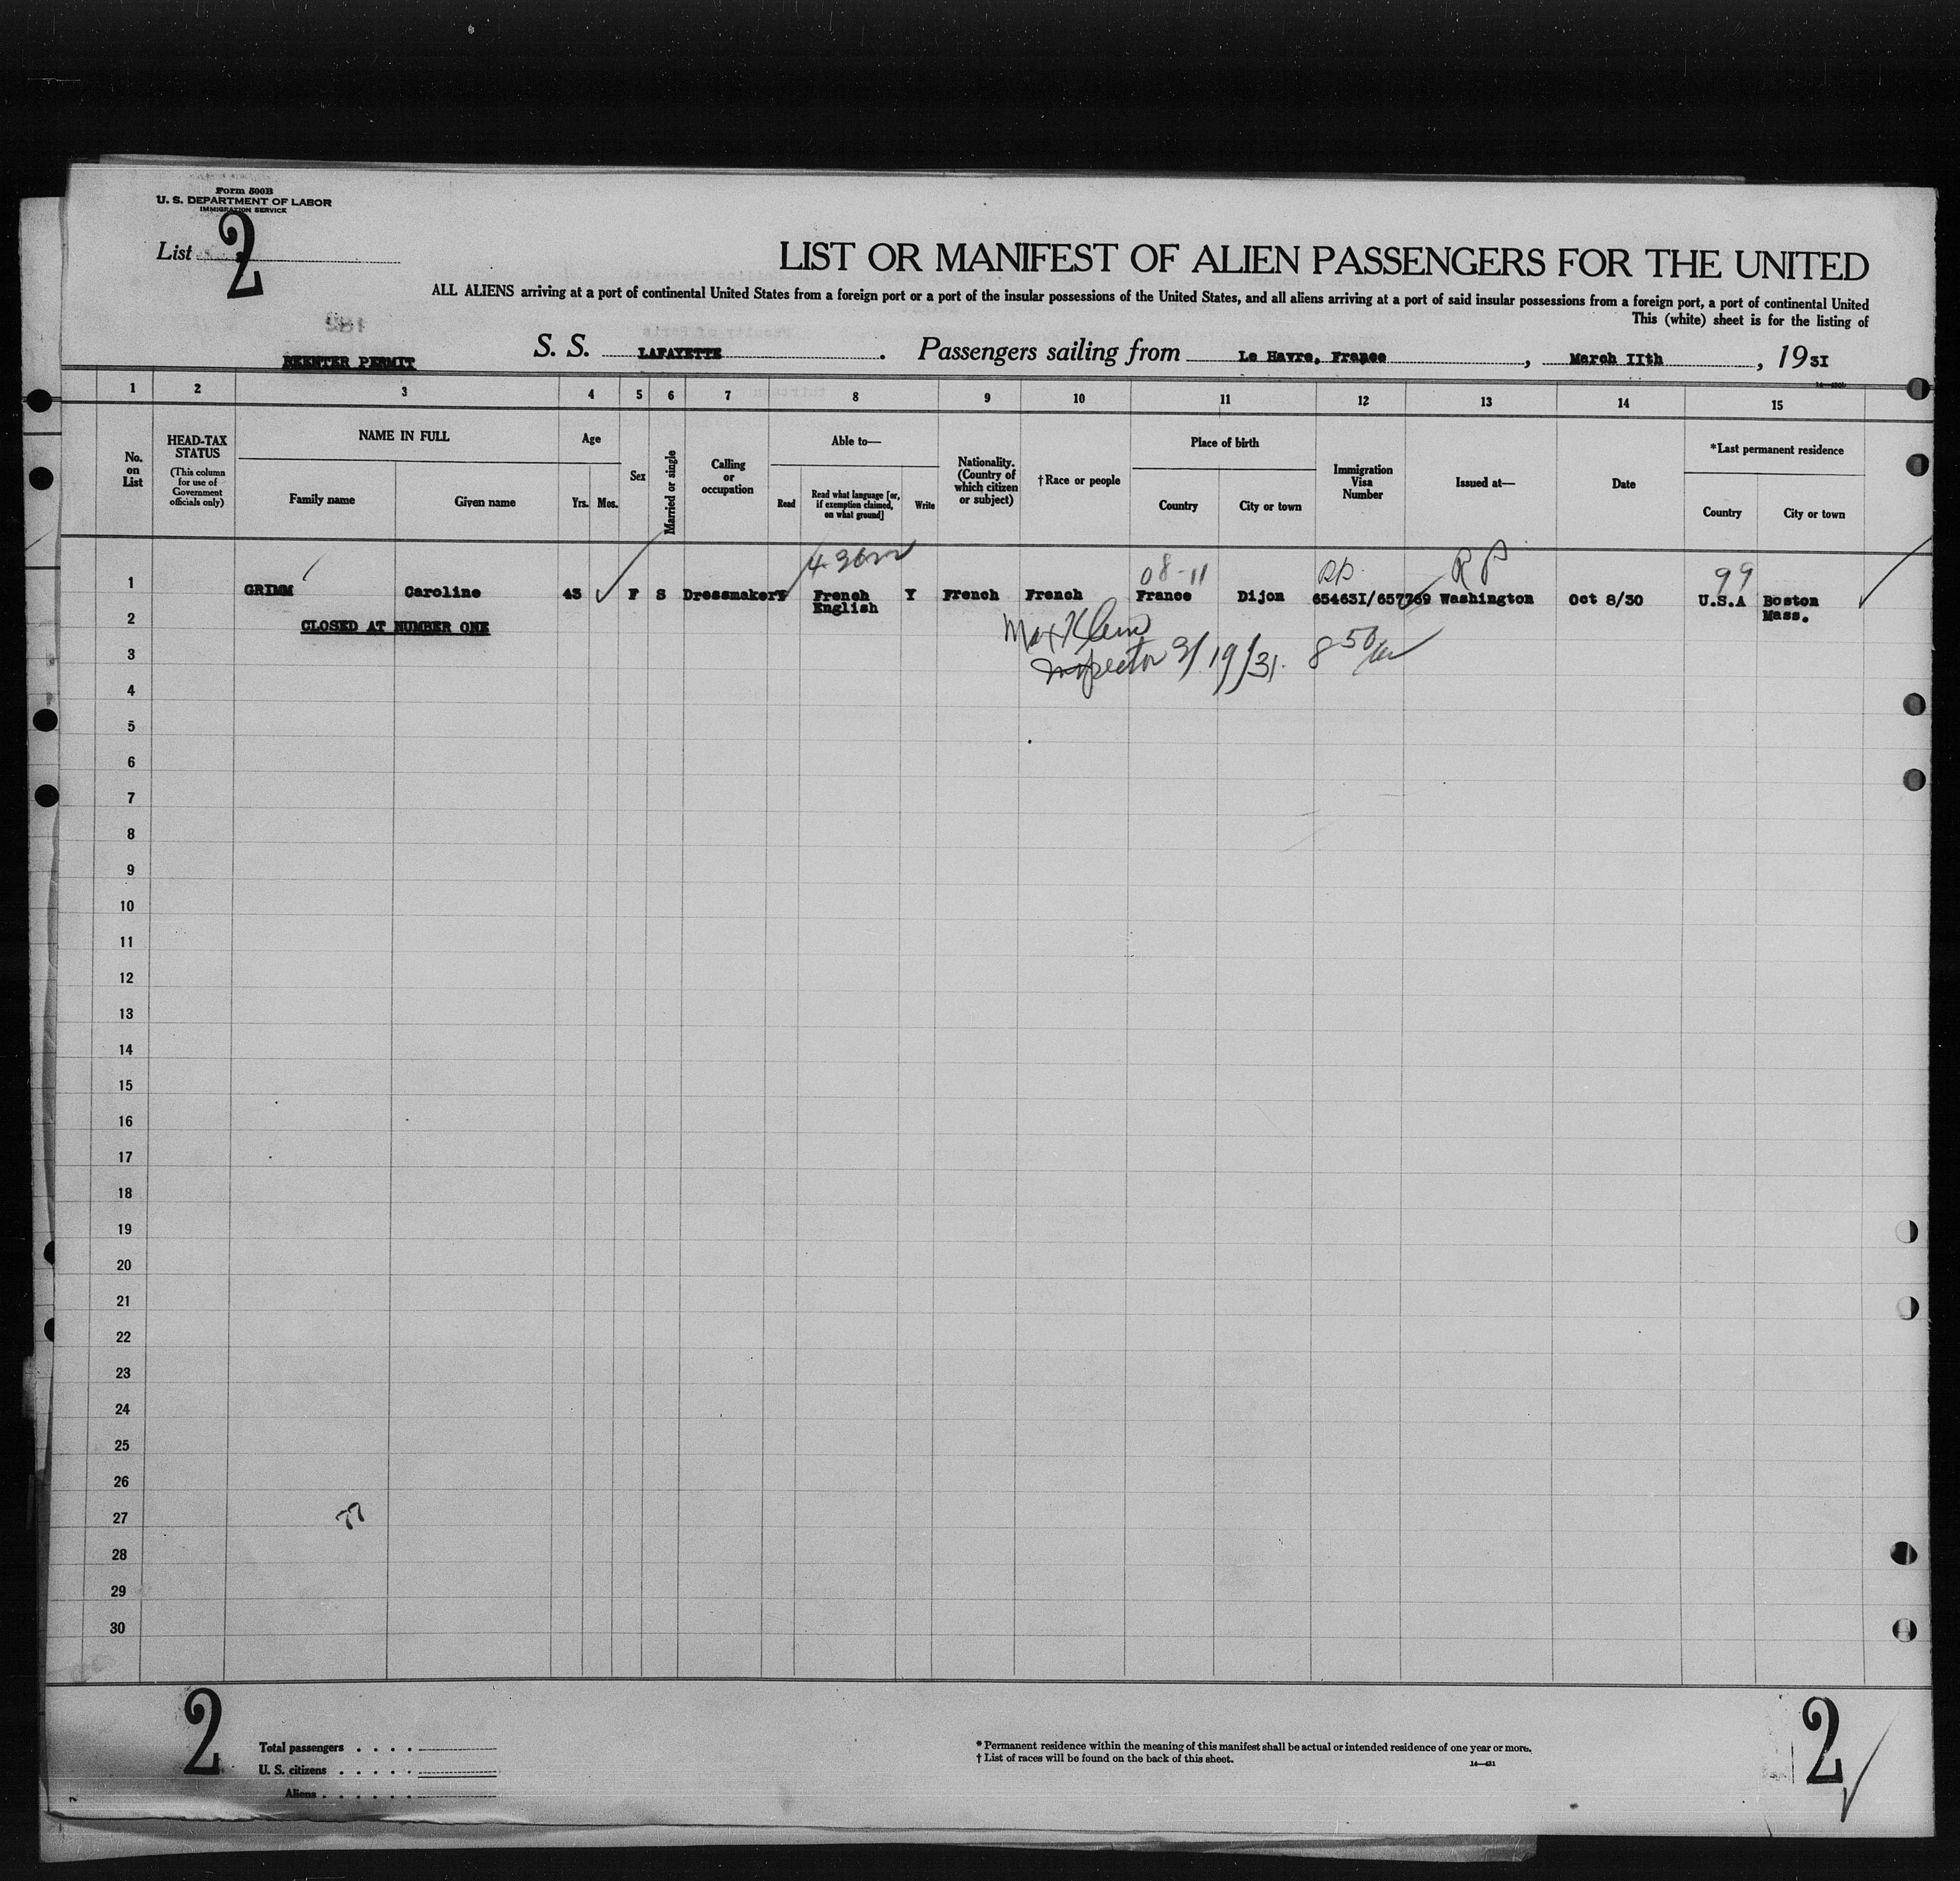 Form 500B
U. S. DEPARTMENT OF LABOR
IMMIGRATION SERVICE
List 2
LIST OR MANIFEST OF ALIEN PASSENGERS FOR THE UNITED
ALL ALIENS arriving at a port of continental United States from a foreign port or a port of the insular possessions of the United States, and all aliens arriving at a port of said insular possessions from a foreign port, a port of continental United
This (white) sheet is for the listing of
REENTER PERMIT S. S. LAFAYETTE . Passengers sailing from Le Havre, France , March IIth , 1931
1 2 3 4 5 6 7 8 9 10 11 12 13 14 15
No. on List
HEAD-TAX STATUS (This column for use of Government officials only)
NAME IN FULL
Family name Given name
Age
Yrs. Mos.
Sex
Married or single
Calling or occupation
Able to—
Read Read what language [or, if exemption claimed, on what ground] Write
Nationality. (Country of which citizen or subject)
†Race or people
Place of birth
Country City or town
Immigration Visa Number
Issued at—
Date
*Last permanent residence
Country City or town
08-11 RP 99
1 GRIMM Caroline 43 F S Dressmaker Y French Y French French France Dijon 65463I/657769 Washington Oct 8/30 U.S.A Boston
English Mass.
2 CLOSED AT NUMBER ONE Max Klein
3 Inspector 3/19/31. 8 50
4
5
6
7
8
9
10
11
12
13
14
15
16
17
18
19
20
21
22
23
24
25
26
27
28
29
30
77
2
Total passengers . . . .
U. S. citizens . . . . .
Aliens . . . . . .
* Permanent residence within the meaning of this manifest shall be actual or intended residence of one year or more.
† List of races will be found on the back of this sheet.
14—431
2